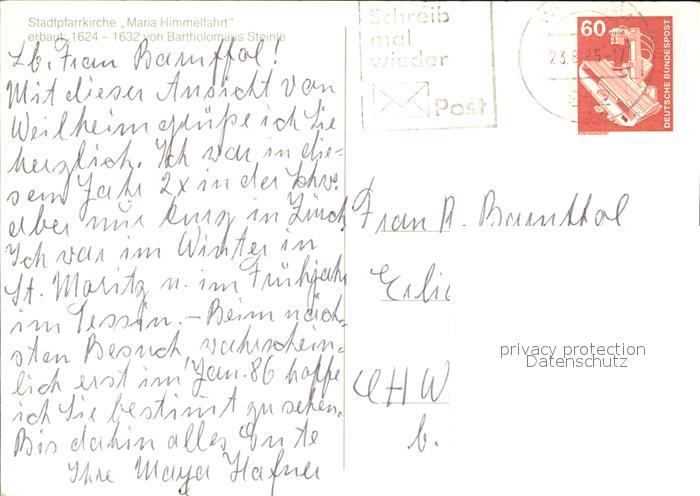 Stadtpfarrkirche „Maria Himmelfahrt"
erbaut 1624 – 1632 von Bartholomäus Steinle
Lb. Frau Barnffol!
Mit dieser Ansicht von
Weilheim grüße ich Sie
herzlich. Ich war in die-
sem Jahr 2x in der Schw.
aber nur kurz in Zürich
Ich war im Winter in
St. Moritz u. im Frühjahr
im Tessin. – Beim näch-
sten Besuch, wahrschein-
lich erst im Jan. 86 hoffe
ich Sie bestimmt zu sehen.
Bis dahin alles Gute
Ihre Maya Hafner
Schreib
mal
wieder
Post
23.8
60
DEUTSCHE BUNDESPOST
Frau R. Barnthol
Erli
CH W
b.
privacy protection
Datenschutz